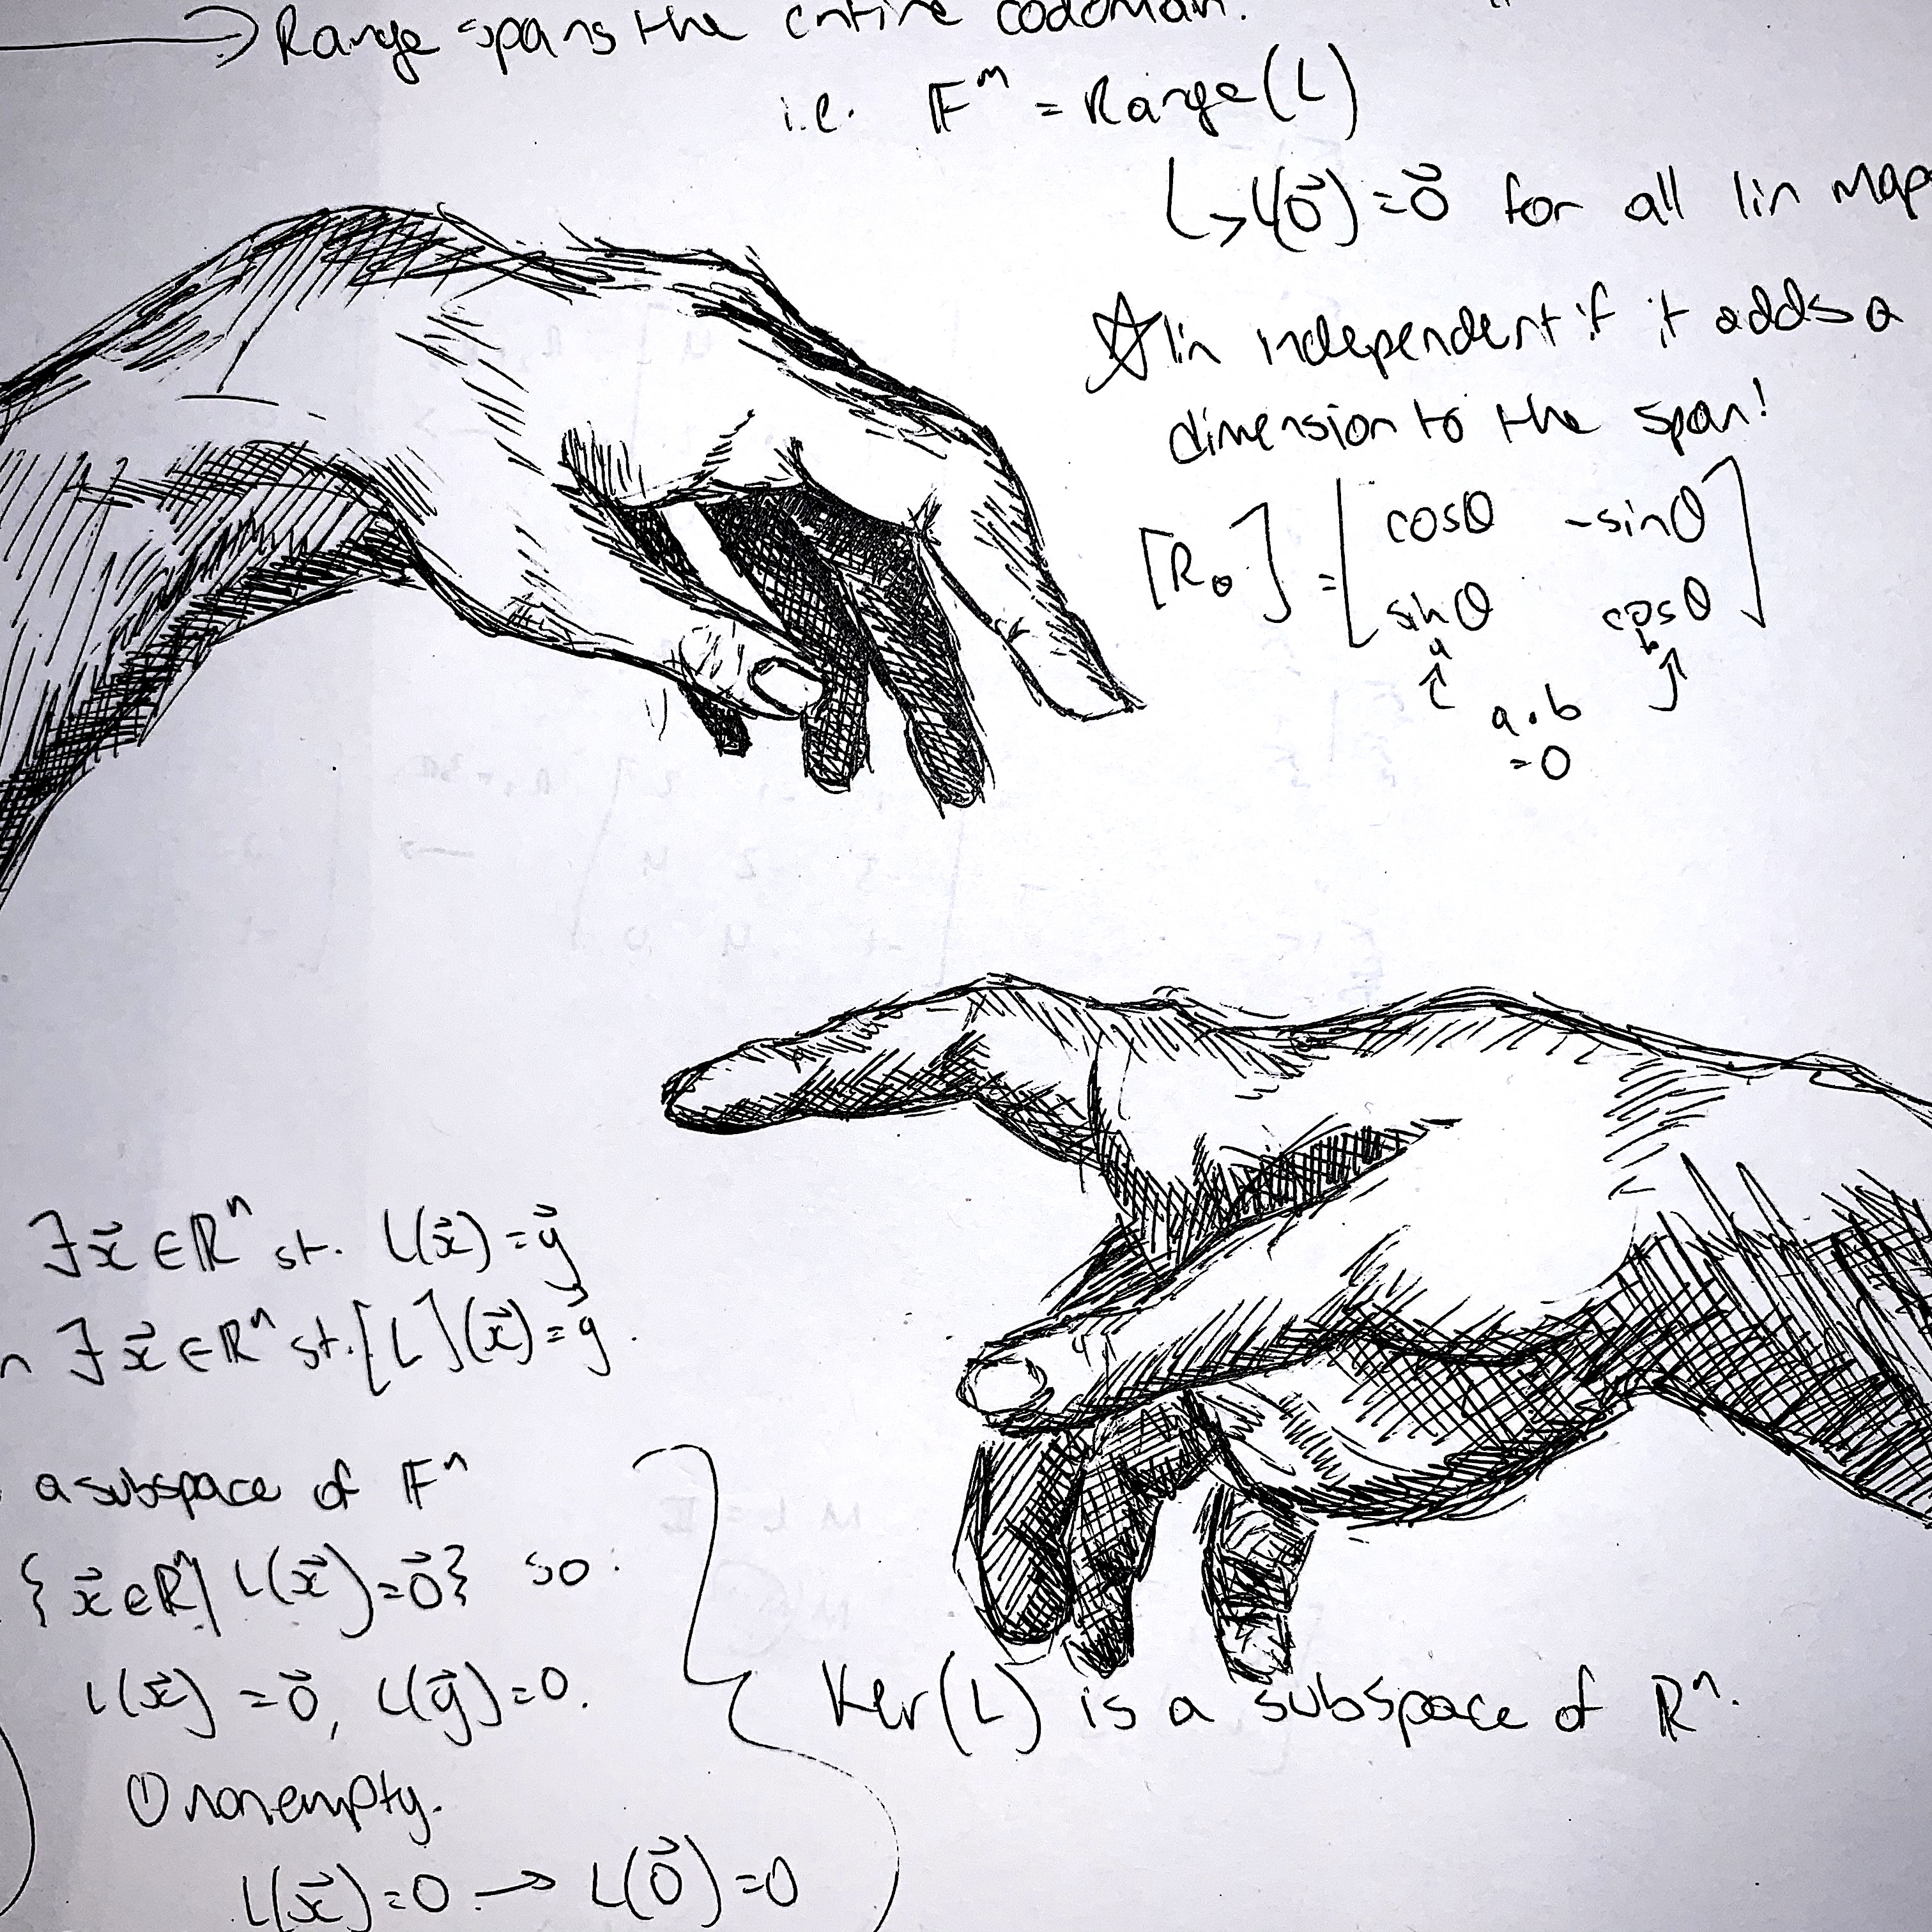 → Range spans the entire codomain.
i.e. 𝔽ᵐ = Range(L)
↳ L(0⃗) = 0⃗ for all lin map
☆ lin independent if it adds a
dimension to the span!
[R_θ] = [cosθ -sinθ
sinθ cosθ]
a b
a · b
= 0
∃ x⃗ ∈ ℝⁿ st. L(x⃗) = y⃗
∃ x⃗ ∈ ℝⁿ st. [L](x⃗) = y⃗.
a subspace of 𝔽ⁿ
{x⃗ ∈ ℝⁿ | L(x⃗) = 0⃗} so:
L(x⃗) = 0⃗, L(y⃗) = 0.
① nonempty.
L(x⃗) = 0 → L(0⃗) = 0
Ker(L) is a subspace of ℝⁿ.